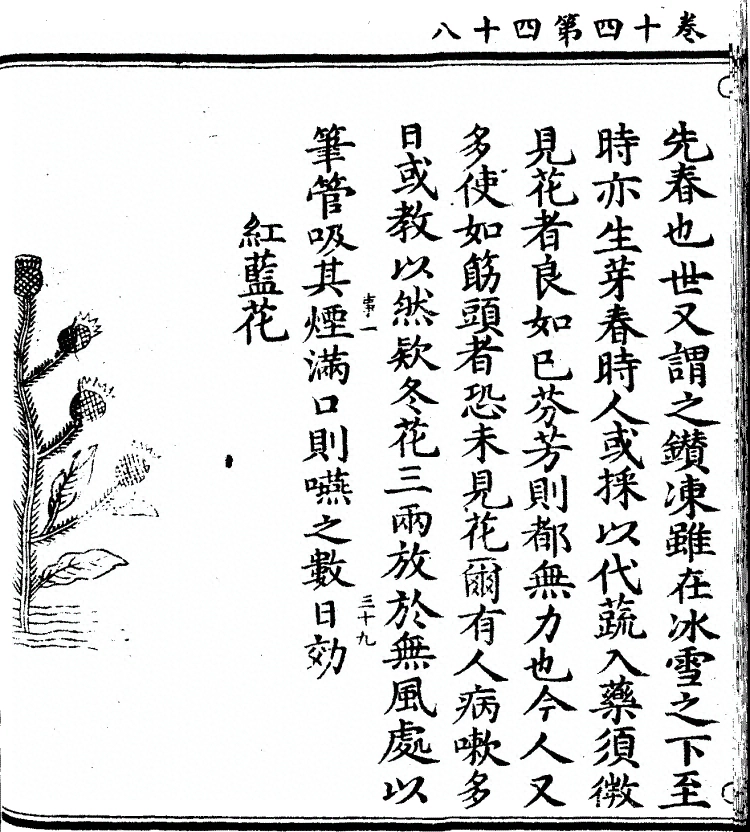 卷十四第四十八
先春也世又謂之鑚凍雖在冰雪之下至
時亦生芽春時人或採以代蔬入藥須微
見花者良如已芬芳則都無力也今人又
多使如筯頭者恐未見花爾有人病嗽多
日或教以然欵冬花三兩放於無風處以
筆管吸其煙滿口則嚥之數日効
事一
三十九
紅藍花